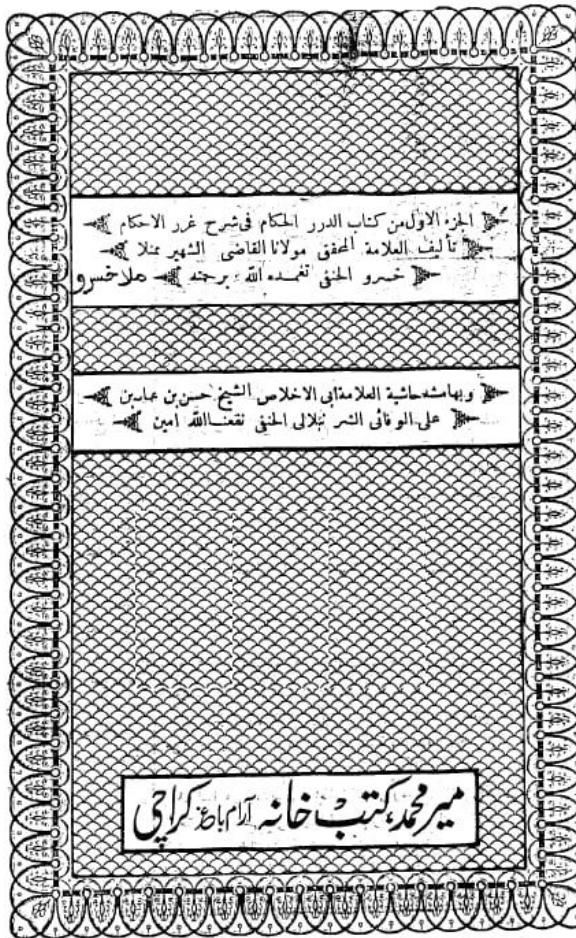 الجزء الاول من كتاب الدرر الحكام فى شرح غرر الاحكام
تأليف العلامة المحقق مولانا القاضى الشهير بمنلا
خسرو الحنفى تغمده الله برحمته ملا خسرو
وبهامشه حاشية العلامة ابى الاخلاص الشيخ حسن بن عمار بن
على الوفائى الشرنبلالى الحنفى نفعنا الله امين
میر محمد، کتب خانہ آرام باغ کراچی